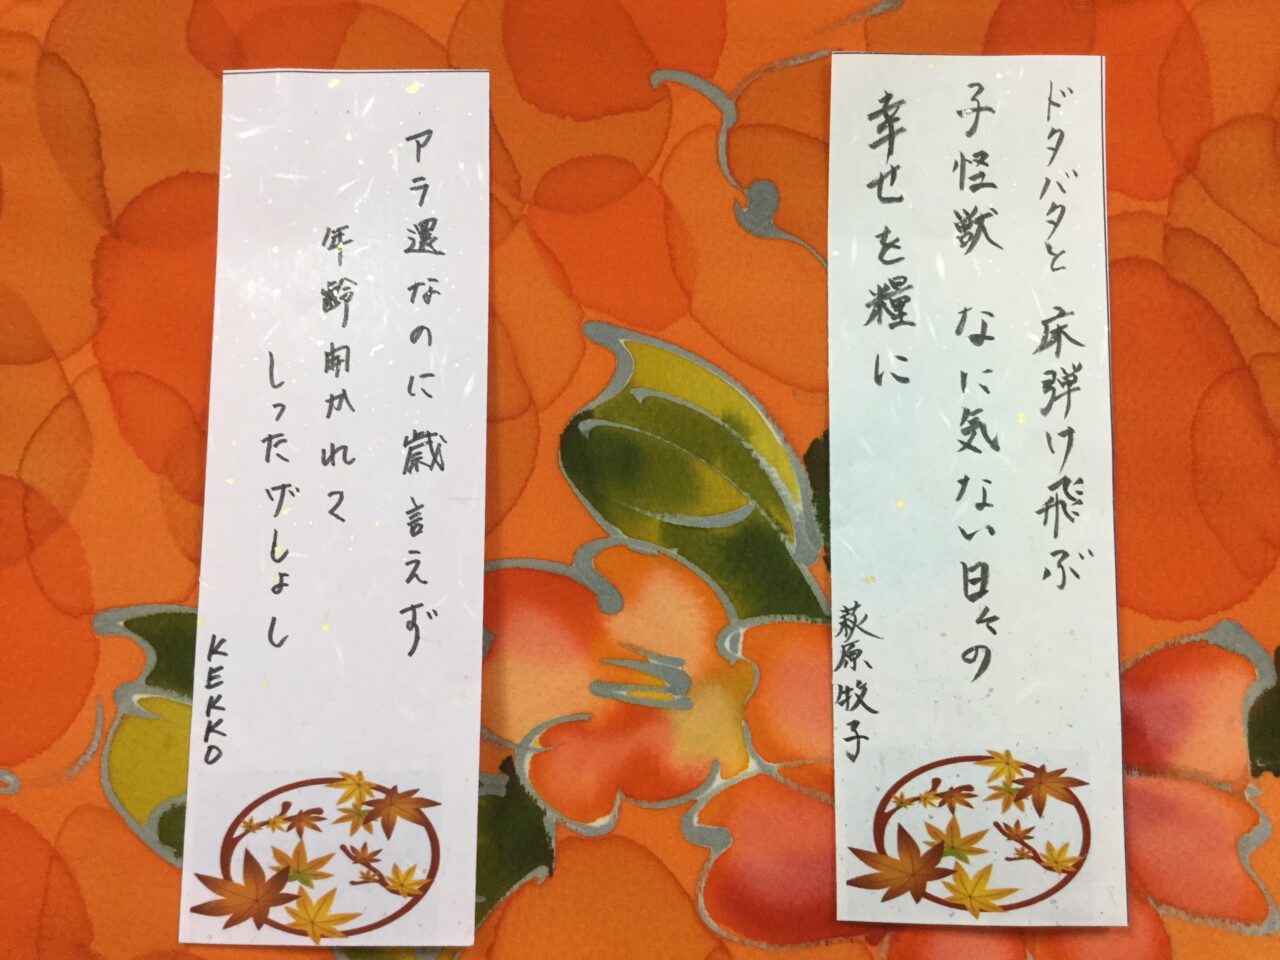 ドタバタと 床弾け飛ぶ
子怪獣 なに気ない日々の
幸せを糧に
萩原牧子
アラ還なのに歳言えず
年齢聞かれて
しったげしょし
KEKKO